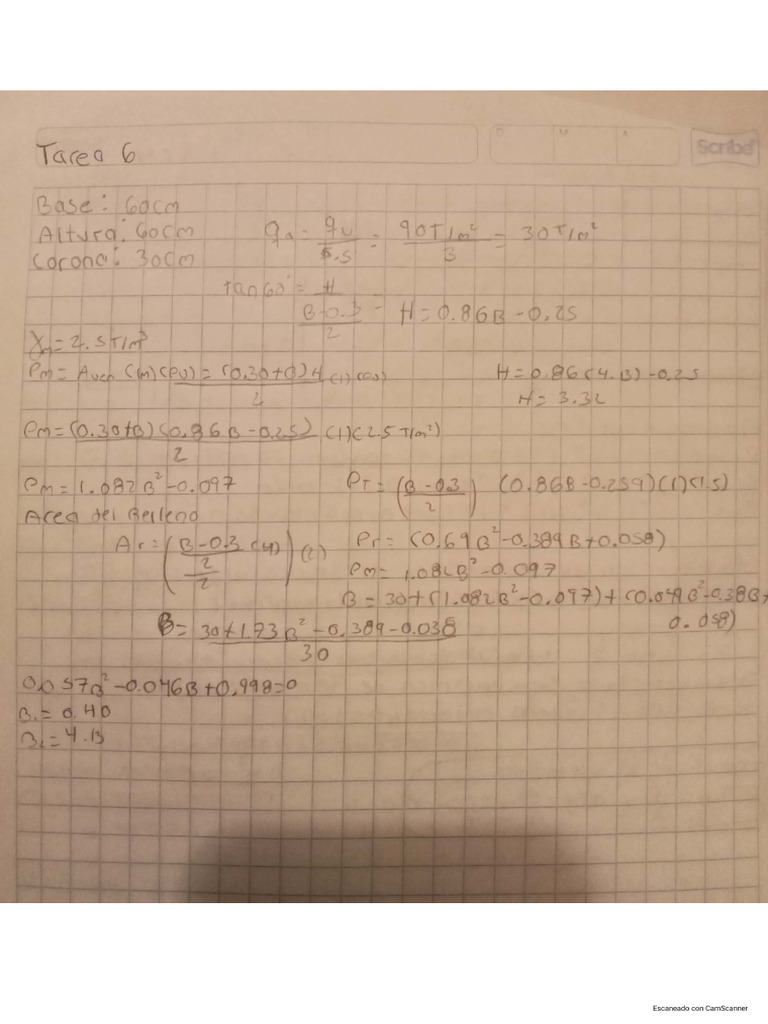 Scribe
Tarea 6
Base: 60cm
Altura: 60cm
Corona: 30cm
qa = qu / F.S = 90T/m² / 3 = 30T/m²
Tan60° = H / (B-0.3 / 2) = H=0.86B-0.25
γm=2.5T/m³
Pm= (m)(PV)=(0.30+B)H / 2 (1)
H=0.86(4.13)-0.25
H=3.32
Pm=(0.30+B)(0.86B-0.25) / 2 (1)(2.5T/m²)
Pm=1.082B²-0.097
Pr=(B-0.3 / 2)(0.86B-0.259)(1)(1.5)
Area del Relleno
Ar=(B-0.3 / 2 (H) / 2)(2)
Pr=(0.69B²-0.389B+0.058)
Pm=1.082B²-0.097
B=30+(1.082B²-0.097)+(0.649B²-0.38B+
0.058)
B=30+1.73B²-0.389-0.038 / 30
0.057B²-0.046B+0.998=0
B₁=0.40
B₂=4.13
Escaneado con CamScanner